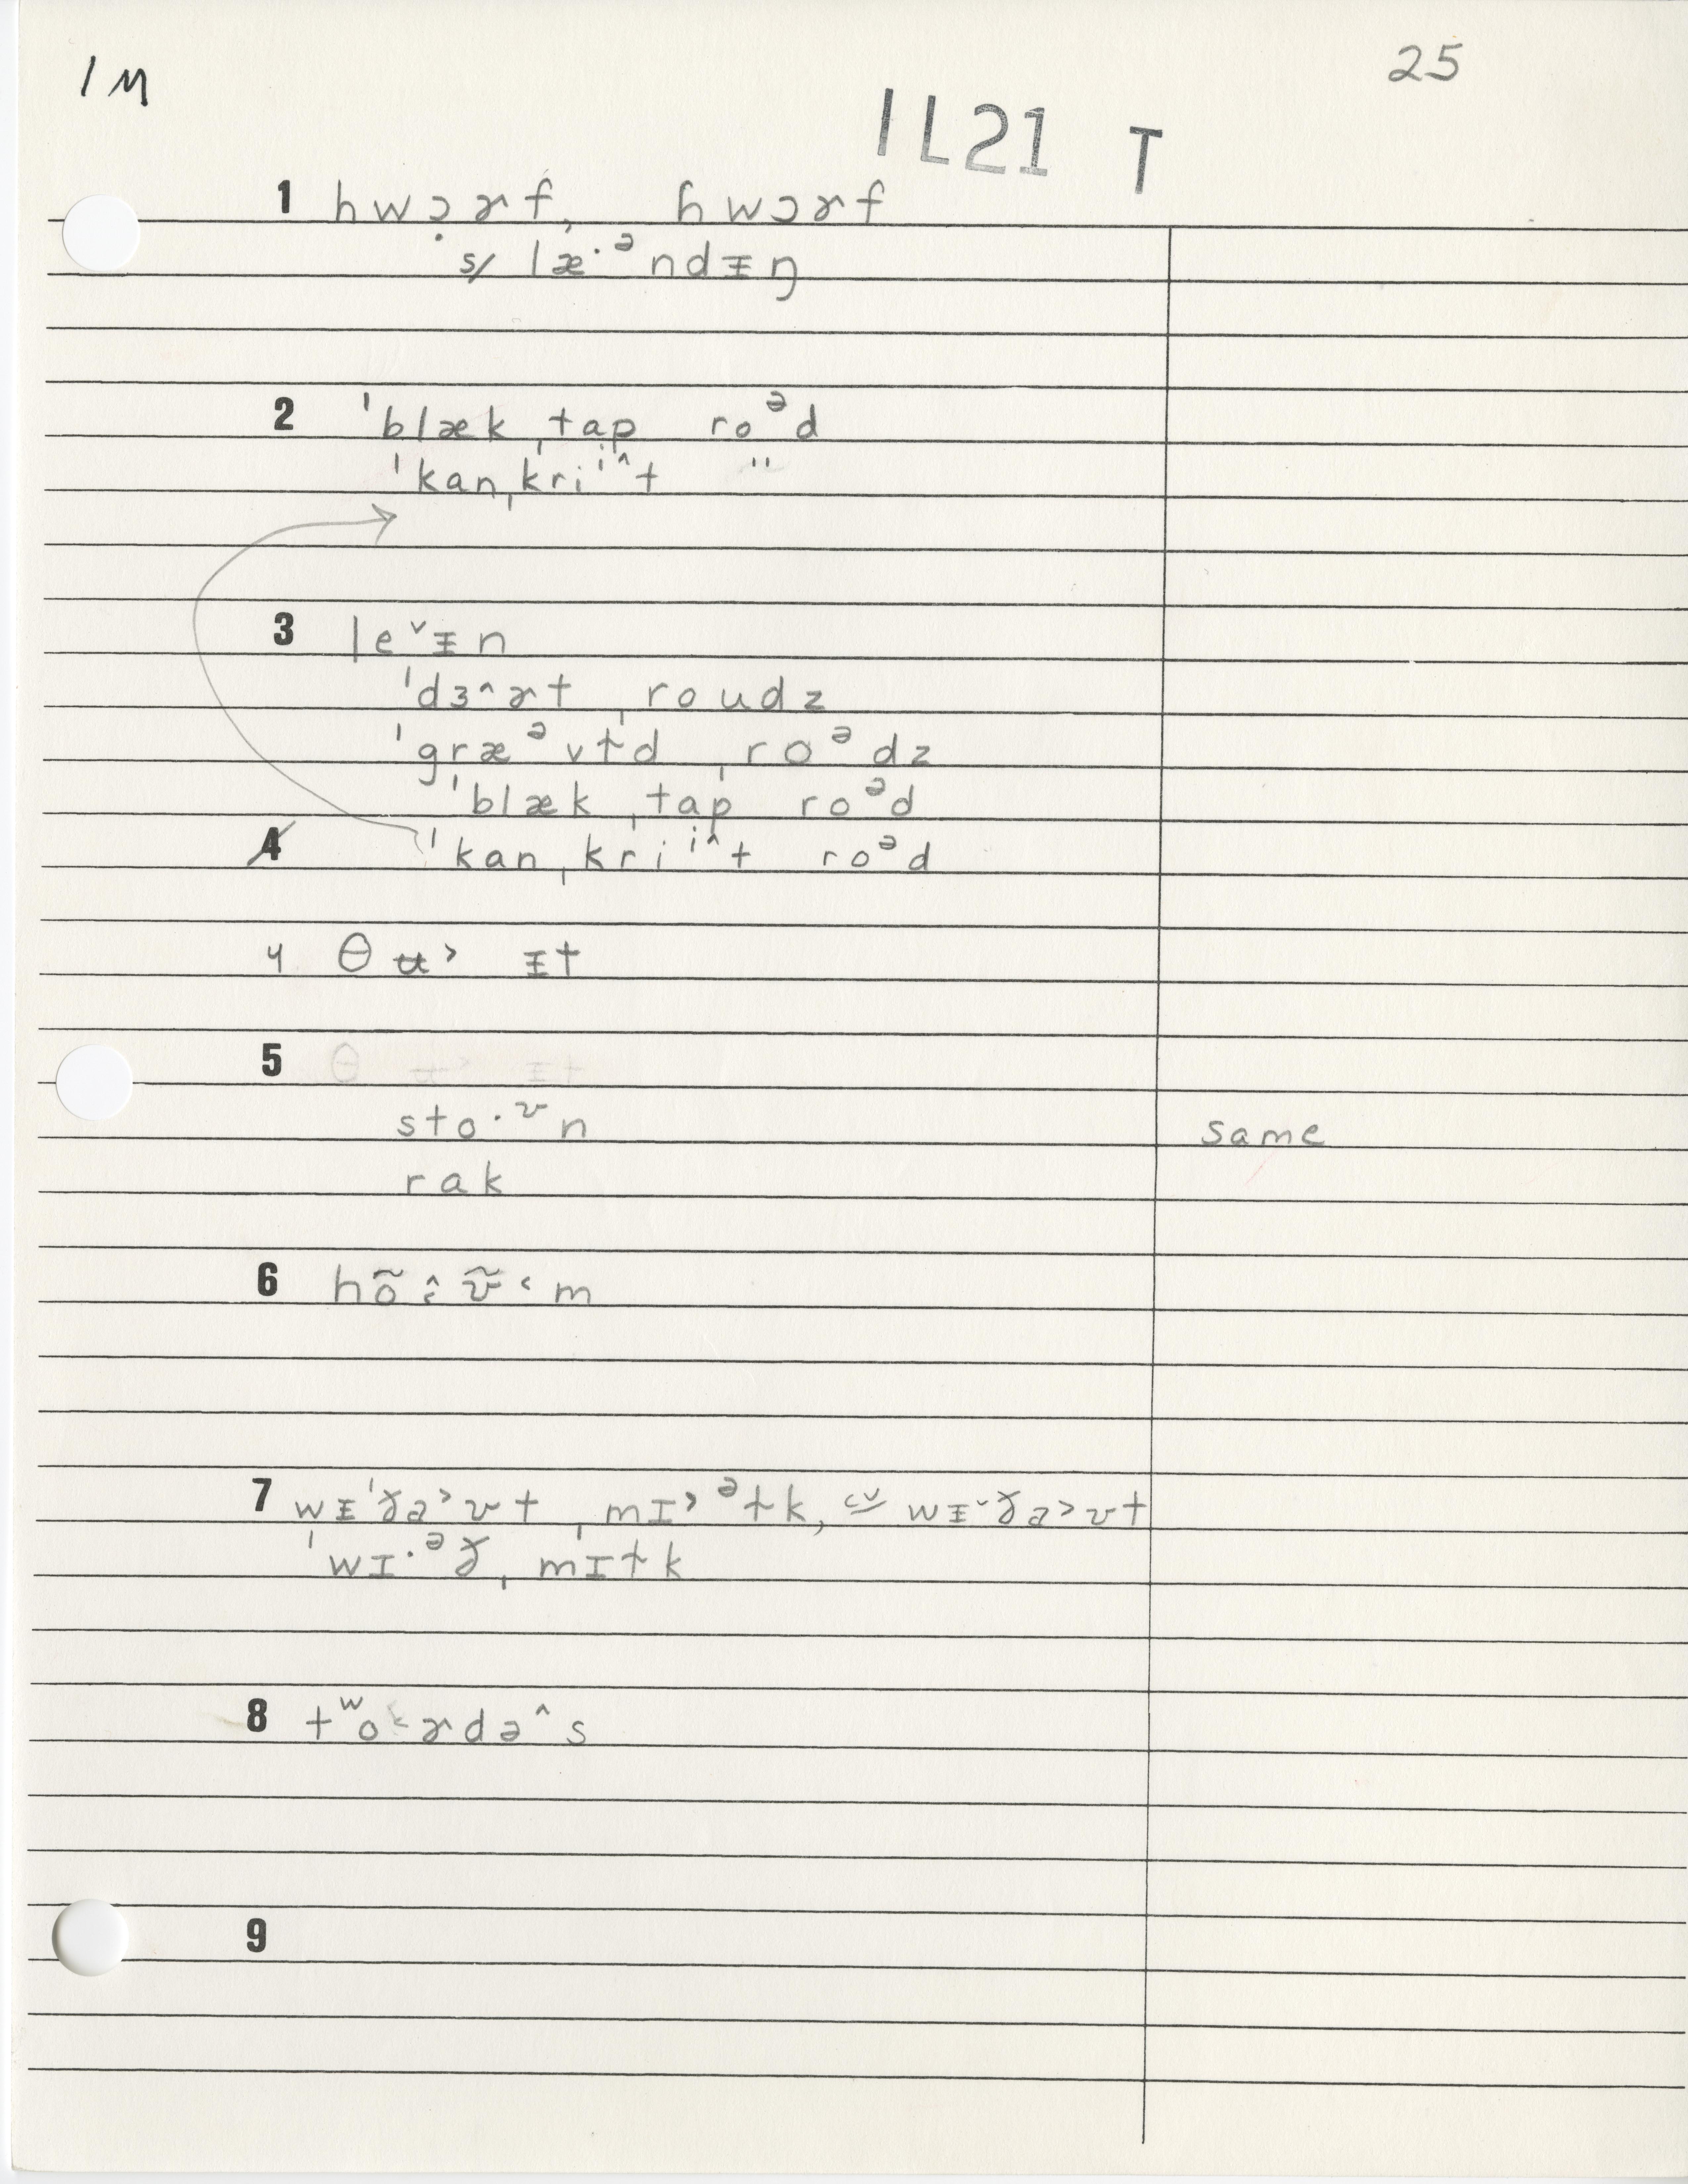 1M
25
1L21 T
1 hwɔ̣ɚf, ɦwɔɚf
s/ læ·ᵊndᵻŋ
2 ˈblækˌtap roᵊd
ˈkanˌkriⁱ^t "
3 le˅ᵻn
ˈdɜ^ɚtˌroudz
ˈgræᵊvɫdˌroᵊdz
ˈblækˌtap roᵊd
4 ˈkanˌkriⁱ^t roᵊd
4 θʉ> ᵻt
5
sto·ᶹn same
rak
6 hõːʋ̃˂m
7 wᵻˈða>ʊtˌmɪ>ᵊɫk, wᵻ˅ða>ʊt
ˈwɪ·ᵊðˌmɪɫk
8 tʷo˂ɚdə^s
9